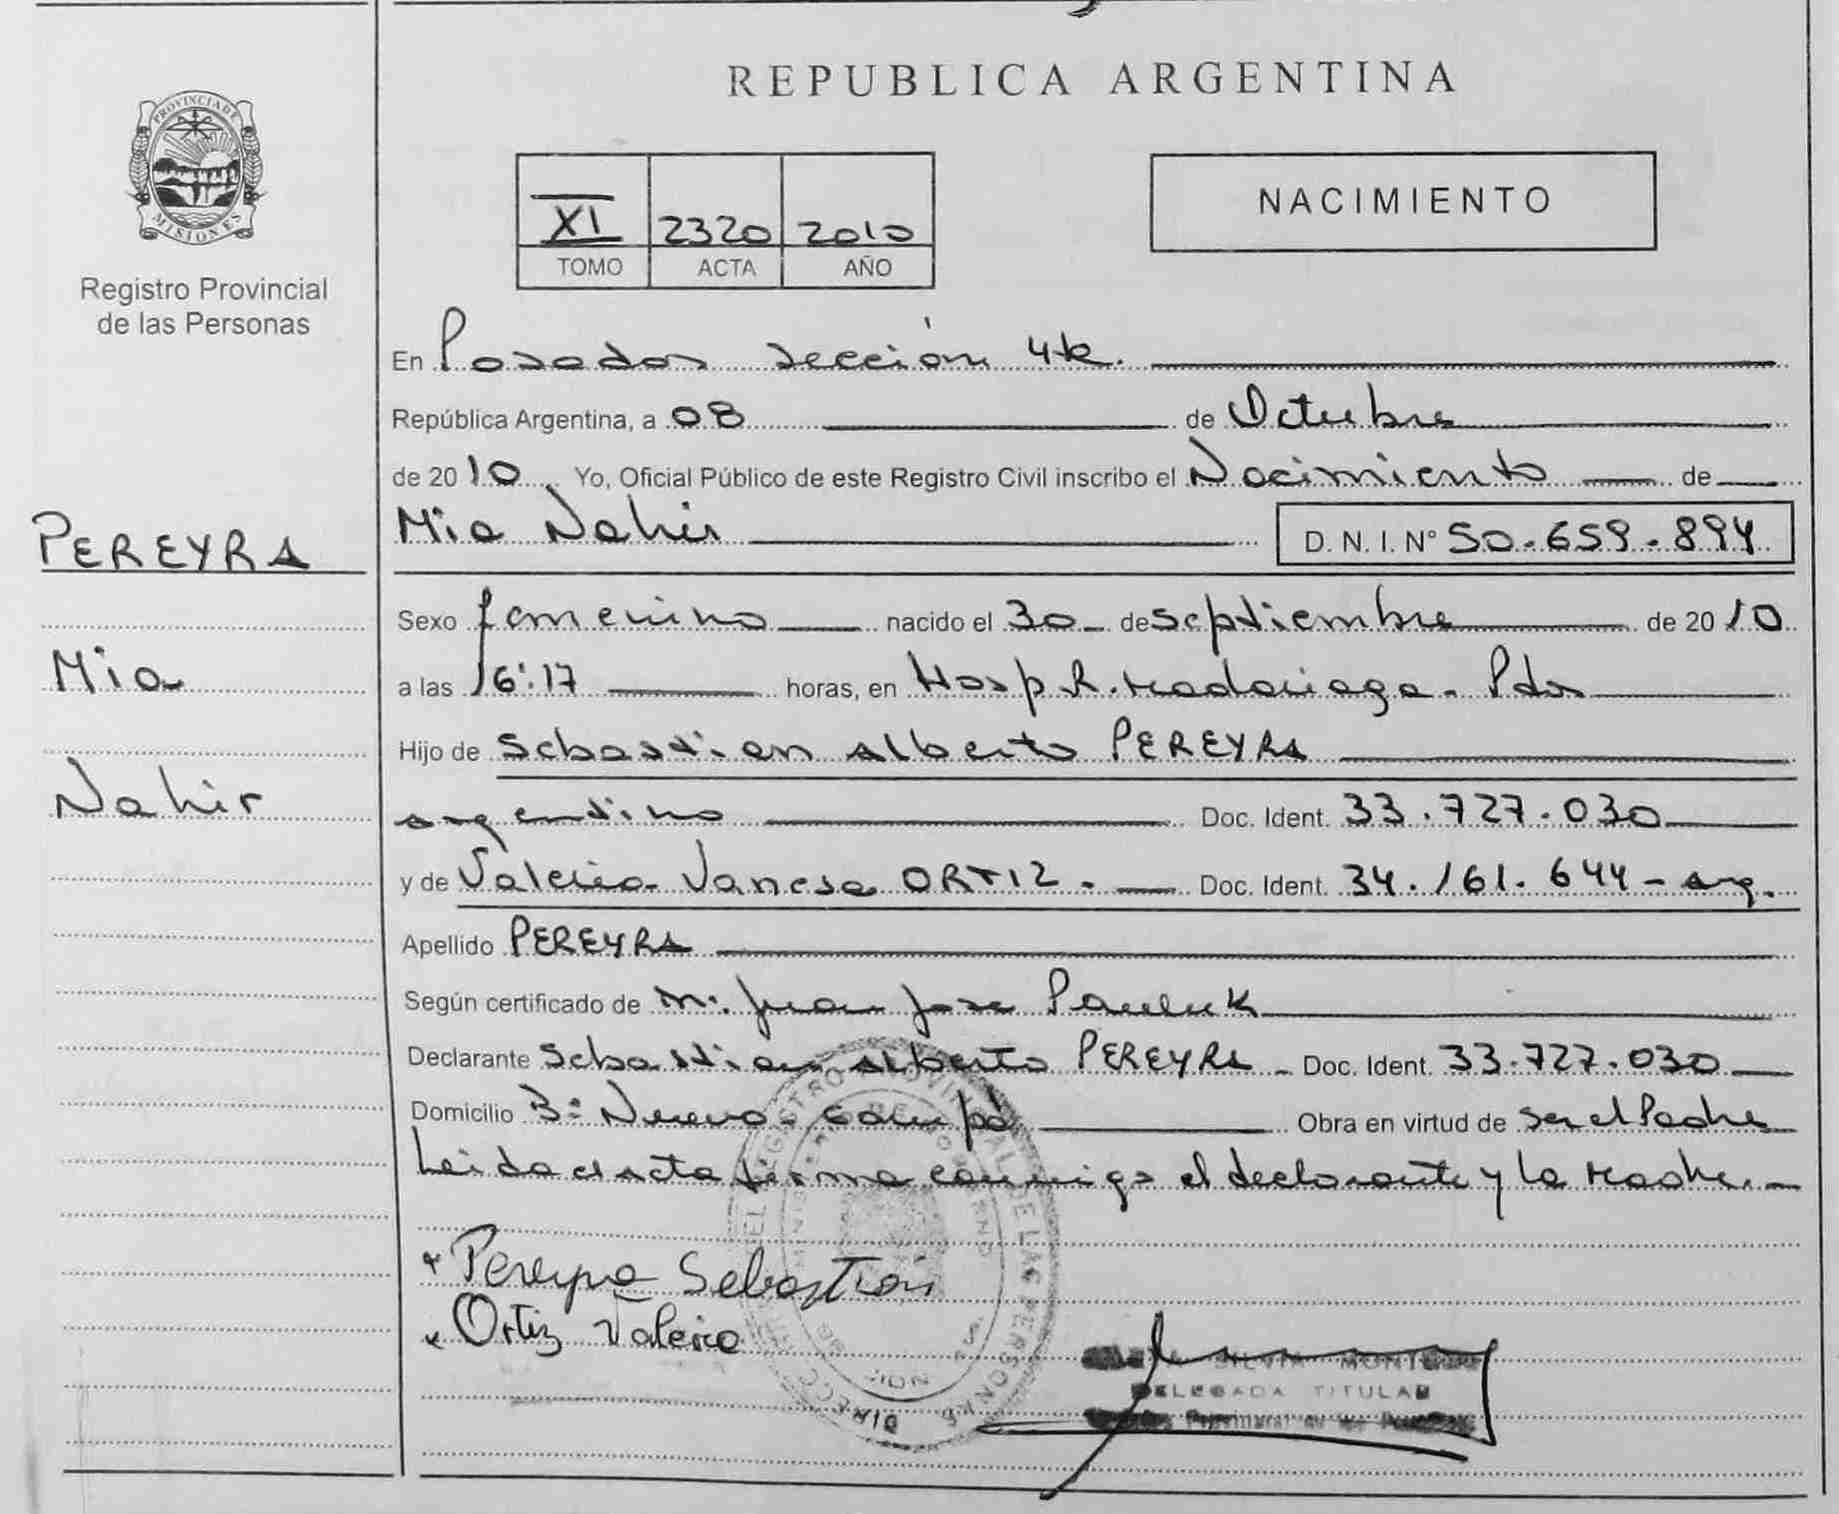 REPUBLICA ARGENTINA
PROVINCIA DE
MISIONES
Registro Provincial
de las Personas
XI 2320 2010
TOMO ACTA AÑO
NACIMIENTO
En Posadas sección 4ta.
República Argentina, a 08 de Octubre
de 2010 Yo, Oficial Público de este Registro Civil inscribo el Nacimiento de
Mia Nahir D. N. I. N° 50.659.894
PEREYRA
Mia
Nahir
Sexo femenino nacido el 30 de Septiembre de 2010
a las 16:17 horas, en Hosp R. Madariaga - Pdas
Hijo de Sebastian Alberto PEREYRA
argentino Doc. Ident. 33.727.030
y de Valeria Vanesa ORTIZ. Doc. Ident. 34.161.644 - arg.
Apellido PEREYRA
Según certificado de M. Juan Jose Pauluk
Declarante Sebastian Alberto PEREYRA - Doc. Ident. 33.727.030
Domicilio B° Nuevo Obra en virtud de ser el Padre
Leida el acta firma conmigo el declarante y la Madre.
Pereyra Sebastian
Ortiz Valeria
SILVIA
DELEGADA TITULAR